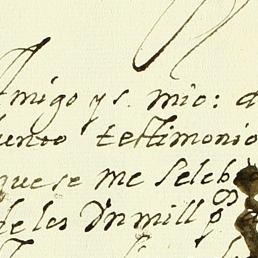 Amigo y s. mio: a
unto testimonio
que se me Seleb
de los Dn mill p